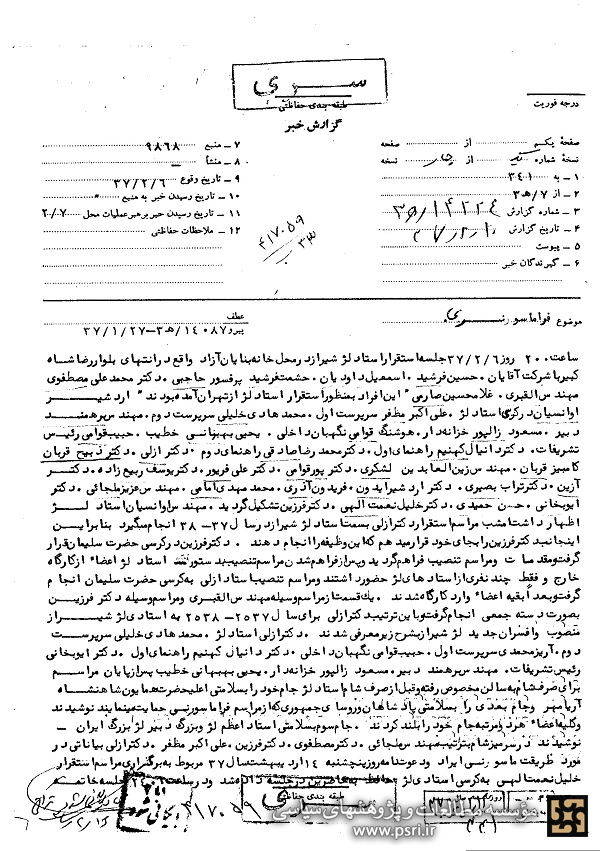 سری
طبقه بندی حفاظتی
گزارش خبر
درجه فوریت
صفحهٔ یکم از صفحه
نسخهٔ شماره از نسخه
۱ – به ۳۴۱
۲ – از ۷/ ه۳
۳ – شماره گزارش ۱۴۲۲۴/ ه۳
۴ – تاریخ گزارش
۵ – پیوست
۶ – گیرندگان خبر
۷ – منبع ۹۸۶۸
۸ – منشأ
۹ – تاریخ وقوع ۳۷/۲/۶
۱۰ – تاریخ رسیدن خبر به منبع "
۱۱ – تاریخ رسیدن خبر برهبر عملیات محل ۲/۷
۱۲ – ملاحظات حفاظتی
۴۱۷۰۵۹
موضوع فراماسونری
عطف
پیرو ۱۴۰۸۷/ه۳–۳۷/۱/۲۷
ساعت ۲۰۰۰ روز ۳۷/۲/۶ جلسه استقرار استاد لژ شیراز در محل خانه بنایان آزاد واقع در انتهای بلوار رضا شاه
کبیر با شرکت آقایان . حسین فرشید . اسمعیل داودیان . حشمت فرشید پرفسور حاجبی . دکتر محمد علی مصطفوی
مهندس القبری . غلامحسین صارمی " این افراد بمنظور استقرار استاد لژ از تهران آمده بودند " اردشیر
اوانسیان در کرسی استاد لژ . علی اکبر مظفر سرپرست اول . محمد هادی خلیلی سرپرست دوم . مهندس برهمند
دبیر . مسعود زالپور خزانه دار . هوشنگ قوامی نگهبان داخلی . یحیی بهبهانی خطیب . حبیب قوامی رئیس
تشریفات . دکتر دانیال کهنیم راهنمای اول . دکتر محمد رضا صادقی راهنمای دوم . دکتر ازلی . دکتر ذبیح قربان
کامبیز قربان . مهندس زین العابدین لشکری . دکتر پور قوامی . دکتر علی فرپور . دکتر یوسف ربیع زاده . دکتر
آزین . دکتر تراب بصیری . دکتر ارد شیر ایدون . فریدون آذری . محمد مهدی امامی . مهندس عزیز ملجائی . دکتر
ایوبخانی . حسن حمیدی . دکتر خلیل نعمت الهی . دکتر فرزین تشکیل گردید . مهندس اوانسیان استاد لژ
اظهار داشت امشب مراسم استقرار دکتر ازلی بسمت استاد لژ شیراز در سال ۳۷–۳۸ انجام میگیرد بنابراین
اینجانب دکتر فرزین را بجای خود قرار میدهم که این وظیفه را انجام دهند . دکتر فرزین در کرسی حضرت سلیمان قرار
گرفت و مقدمات و مراسم تنصیب فراهم گردید و پس از فراهم شدن مراسم تنصیب بدستور استاد لژ اعضاء از کارگاه
خارج و فقط چند نفری از استاد های لژ حضور داشتند و مراسم تنصیب استاد ازلی به کرسی حضرت سلیمان انجام
گرفت و بعد آبقیه اعضاء وارد کارگاه شدند . یک قسمت از مراسم وسیله مهندس القبری و مراسم وسیله دکتر فرزین
بصورت دسته جمعی انجام گرفت و باین ترتیب دکتر ازلی برای سال ۲۵۳۷–۲۵۳۸ به استادی لژ شیراز
منصوب و افسران جدید لژ شیراز بشرح زیر معرفی شدند . دکتر ازلی استاد لژ . محمد هادی خلیلی سرپرست
دوم . آریز محمدی سرپرست اول . حبیب قوامی نگهبان داخلی . دکتر دانیال کهنیم راهنمای اول . دکتر ایوبخانی
رئیس تشریفات . مهندس برهمند دبیر . مسعود زالپور خزانه دار . یحیی بهبهانی خطیب پس از پایان مراسم
برای صرف شام به سالن مخصوص رفته و قبل از صرف شام استاد لژ جام خود را بسلامتی اعلیحضرت همایون شاهنشاه
آریامهر و جام بعدی را بسلامتی پادشاهان و روسای جمهوری که از مراسم فراماسونری حمایت مینمایند نوشیدند
و کلیه اعضاء هر دو مرتبه جام خود را بلند کردند . جام سوم بسلامتی استاد اعظم لژ و بزرگ دبیر لژ بزرگ ایران –
نوشیدند در سر میز شام بترتیب مهندس ملجائی . دکتر مصطفوی . دکتر فرزین . علی اکبر مظفر . دکتر ازلی بیاناتی در
مورد طریقت ماسونی ایراد و دعوتنامه روز پنجشنبه ۱۴ اردیبهشت سال ۳۷ مربوط به برگزاری مراسم استقرار
خلیل نعمت الهی به کرسی استادی لژ حافظ به حاضرین در جلسه داده شد و در ساعت جلسه خاتمه
طبقه بندی حفاظتی
سری
۴۱۷۰۵۹
بایگانی شود
مؤسسه مطالعات و پژوهشهای سیاسی
www.psri.ir